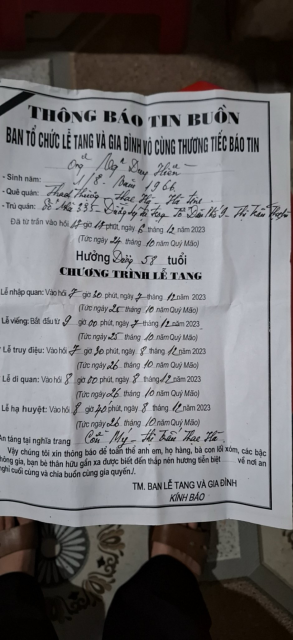 THÔNG BÁO TIN BUỒN
BAN TỔ CHỨC LỄ TANG VÀ GIA ĐÌNH VÔ CÙNG THƯƠNG TIẾC BÁO TIN
Ông
- Sinh năm: 1/8. Năm 1966
- Quê quán: Thạch
- Trú quán: Số
Đã từ trần vào hồi 17 giờ phút, ngày 6 tháng 12 năm 2023
(Tức ngày 24 tháng 10 năm Quý Mão)
Hưởng Dương 58 tuổi
CHƯƠNG TRÌNH LỄ TANG
Lễ nhập quan: Vào hồi 7 giờ 30 phút, ngày 7 tháng 12 năm 2023
(Tức ngày 25 tháng 10 năm Quý Mão)
Lễ viếng: Bắt đầu từ 9 giờ 00 phút, ngày 7 tháng 12 năm 2023
(Tức ngày 25 tháng 10 năm Quý Mão)
Lễ truy điệu: Vào hồi 7 giờ 30 phút, ngày 8 tháng 12 năm 2023
(Tức ngày 26 tháng 10 năm Quý Mão)
Lễ di quan: Vào hồi 8 giờ 00 phút, ngày 8 tháng 12 năm 2023
(Tức ngày 26 tháng 10 năm Quý Mão)
Lễ hạ huyệt: Vào hồi 8 giờ 40 phút, ngày 8 tháng 12 năm 2023
(Tức ngày 26 tháng 10 năm Quý Mão)
An táng tại nghĩa trang Cồn Mý - Thị Trấn Thạch Hà
Vậy chúng tôi xin thông báo để toàn thể anh em, họ hàng, bà con lối xóm, các bậc
thông gia, bạn bè thân hữu gần xa được biết đến thắp nén hương tiễn biệt về nơi an
nghỉ cuối cùng và chia buồn cùng gia quyến./.
TM. BAN LỄ TANG VÀ GIA ĐÌNH
KÍNH BÁO